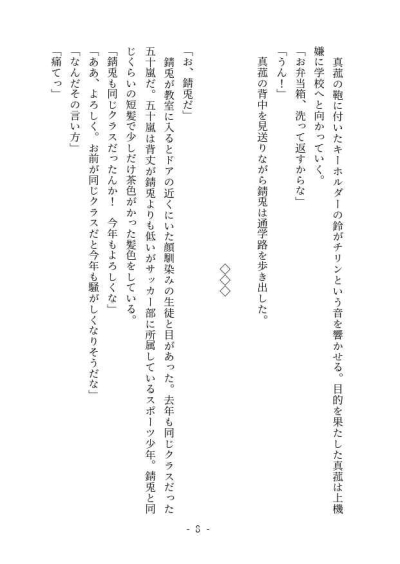 真菰の鞄に付いたキーホルダーの鈴がチリンという音を響かせる。目的を果たした真菰は上機
嫌に学校へと向かっていく。
「お弁当箱、洗って返すからな」
「うん！」
真菰の背中を見送りながら錆兎は通学路を歩き出した。
◇◇◇
「お、錆兎だ」
錆兎が教室に入るとドアの近くにいた顔馴染みの生徒と目があった。去年も同じクラスだった
五十嵐だ。五十嵐は背丈が錆兎よりも低いがサッカー部に所属しているスポーツ少年。錆兎と同
じくらいの短髪で少しだけ茶色がかった髪色をしている。
「錆兎も同じクラスだったんか！　今年もよろしくな」
「ああ、よろしく。お前が同じクラスだと今年も騒がしくなりそうだな」
「なんだその言い方」
「痛てっ」
- 8 -